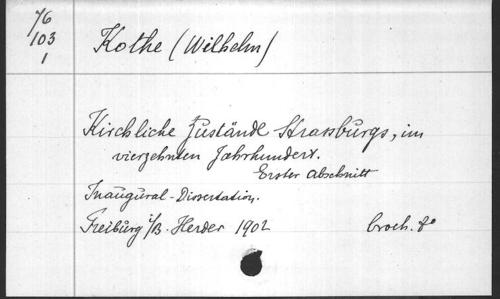 76
103
1
Kothe (Wilhelm)
Kirchliche Zustände Strassburgs, im
vierzehnten Jahrhundert.
Erster Abschnitt
Inaugural-Dissertation.
Freiburg i/B. Herder 1902 broch. 8°